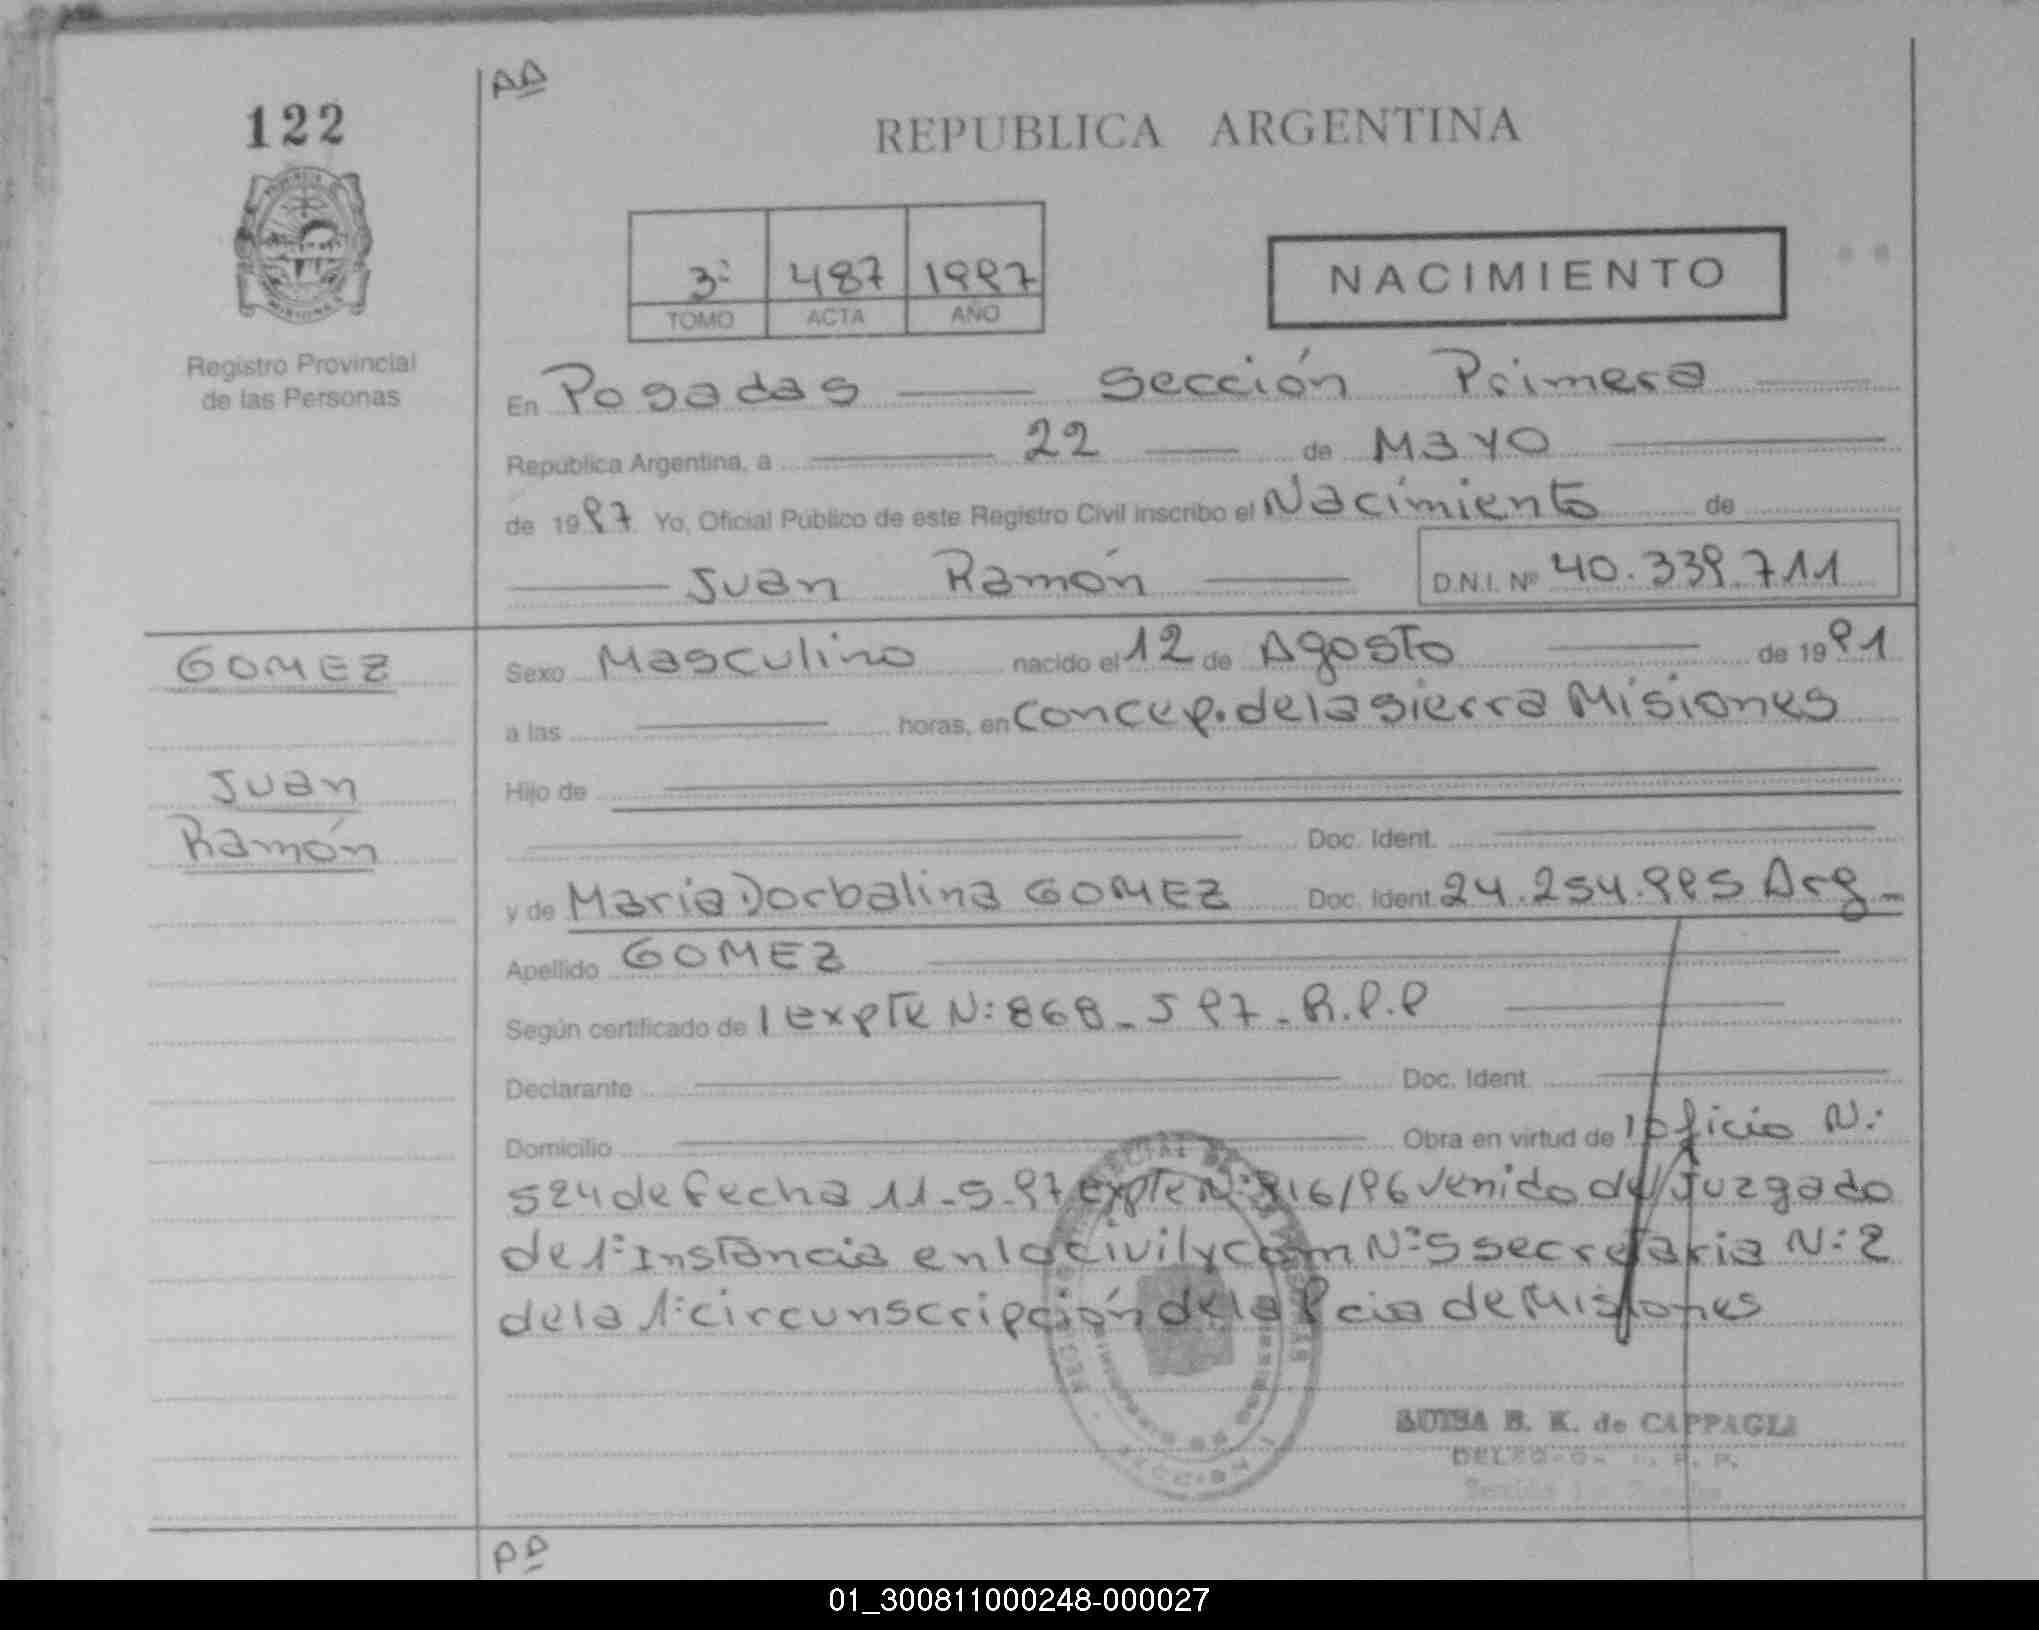 AA
122
REPUBLICA ARGENTINA
3º 487 1997
TOMO ACTA AÑO
NACIMIENTO
Registro Provincial
de las Personas
En Posadas Sección Primera
República Argentina, a 22 de Mayo
de 1997 Yo, Oficial Público de este Registro Civil inscribo el Nacimiento de
Juan Ramón D.N.I. Nº 40.339.711
GOMEZ
Juan
Ramón
Sexo Masculino nacido el 12 de Agosto de 1991
a las horas, en Concep. de la Sierra Misiones
Hijo de
Doc. Ident.
y de Maria Dorbalina GOMEZ Doc. Ident. 24.254.995 Arg
Apellido GOMEZ
Según certificado de 1 expte N: 868-597-R.P.P
Declarante Doc. Ident.
Domicilio Obra en virtud de 1 oficio N:
524 de fecha 11-5-97 expte N: 816/96 venido del Juzgado
de 1º Instancia en lo civil y com Nº 5 secretaria N: 2
de la 1º circunscripción de la Pcia de Misiones
B. K. de CAPPAGLI
SECCION 1
01_300811000248-000027